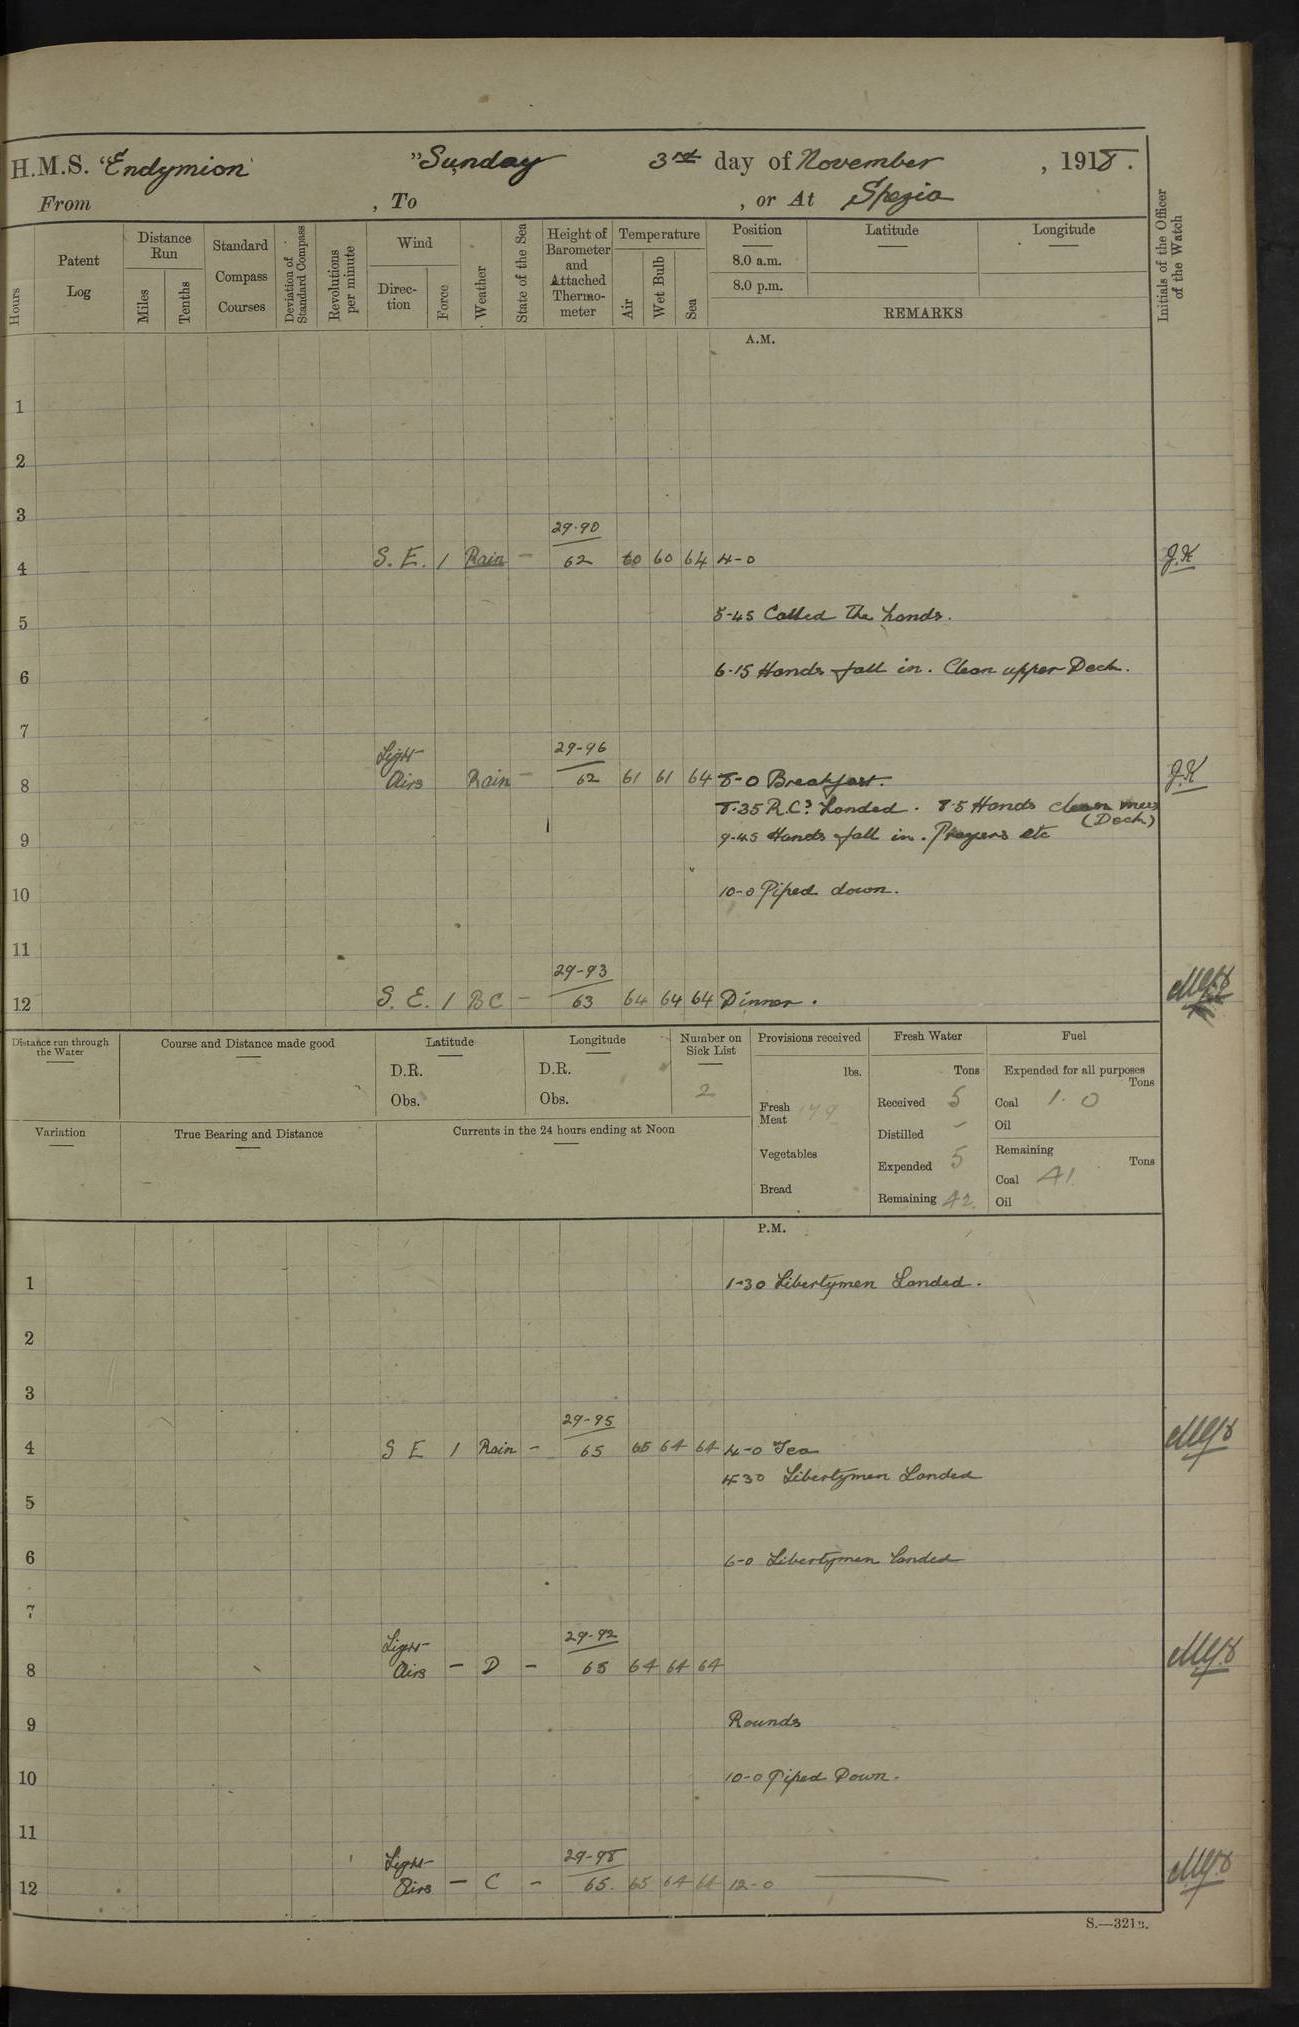 H.M.S. "Endymion" Sunday 3rd day of November, 1918.
From , To , or At Spezia
Hours
Patent Log
Distance Run
Miles
Tenths
Standard Compass Courses
Deviation of Standard Compass
Revolutions per minute
Wind
Direction
Force
Weather
State of the Sea
Height of Barometer and Attached Thermometer
Temperature
Air
Wet Bulb
Sea
Position
8.0 a.m.
8.0 p.m.
Latitude
Longitude
REMARKS
Initials of the Officer of the Watch
A.M.
1
2
3
29-90
4 S. E. 1 Rain - 62 60 60 64 4-0 J.K
5 5-45 Called the hands.
6 6-15 Hands fall in. Clean upper Deck.
7
Light 29-96
8 Airs Rain - 62 61 61 64 8-0 Breakfast. J.K
8.35 R.C.s Landed. 8.5 Hands clean mess
(Deck)
9 9-45 Hands fall in. Prayers etc
10 10-0 Piped down.
11
29-93
12 S. E. 1 BC - 63 64 64 64 Dinner.
Distance run through the Water
Course and Distance made good
Latitude
D.R.
Obs.
Longitude
D.R.
Obs.
Number on Sick List
2
Provisions received
lbs.
Fresh Meat 179
Vegetables
Bread
Fresh Water
Tons
Received 5
Distilled -
Expended 5
Remaining 42
Fuel
Expended for all purposes
Tons
Coal 1.0
Oil
Remaining
Tons
Coal 41
Oil
Variation
True Bearing and Distance
Currents in the 24 hours ending at Noon
P.M.
1 1-30 Libertymen Landed.
2
3
29-95
4 S E 1 Rain - 65 65 64 64 4-0 Tea
4-30 Libertymen Landed
5
6 6-0 Libertymen landed
7
Light 29-92
8 Airs - D - 65 64 64 64
9 Rounds
10 10-0 Piped Down.
11
Light 29-98
12 Airs - C - 65. 65 64 64 12-0
S.—321B.